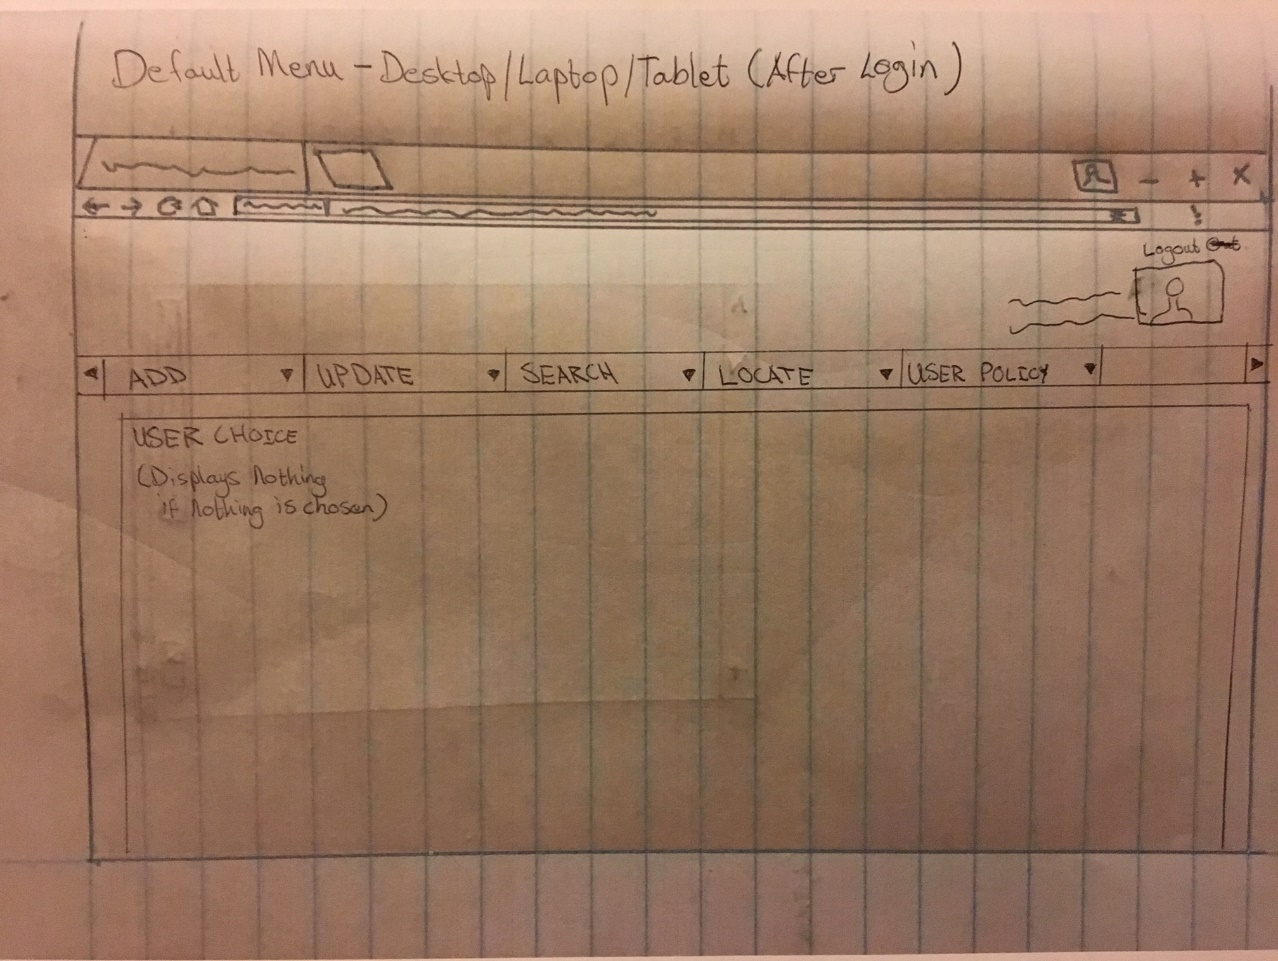 Default Menu - Desktop/Laptop/Tablet (After Login)
Logout
ADD UPDATE SEARCH LOCATE USER POLICY
USER CHOICE
(Displays Nothing
if nothing is chosen)